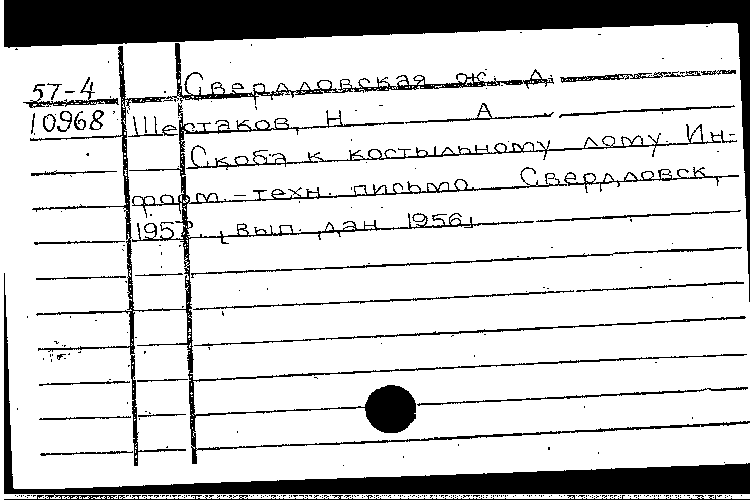 57-4 Свердловская ж. д.
10968 Шестаков, Н А
Скоба к костыльному лому. Ин-
форм.-техн. письмо. Свердловск,
1957. [вып. дан 1956]